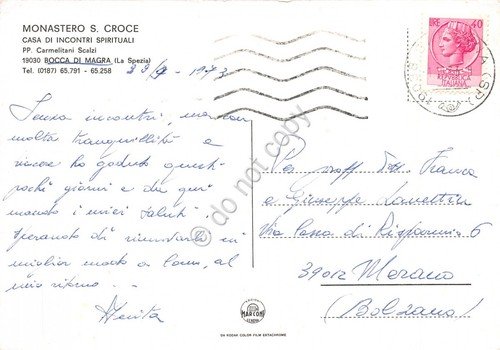 MONASTERO S. CROCE
CASA DI INCONTRI SPIRITUALI
PP. Carmelitani Scalzi
19030 BOCCA DI MAGRA (La Spezia)
Tel. (0187) 65.791 - 65.258
1973
LIRE 40
REPUBBLICA
ITALIANA
(SP)
Senza incontri, ma con
molta tranquillità e
ho goduto questi
pochi giorni e da qui
mando i miei saluti.
Sperando di in
miglior modo a, al
mio ritorno -
Per proff Dott. Franca
e Giuseppe
Via Cassa di Risparmio 6
39012 Merano
(Bolzano)
do not copy
MARCONI
GENOVA
DA KODAK COLOR FILM EKTACHROME